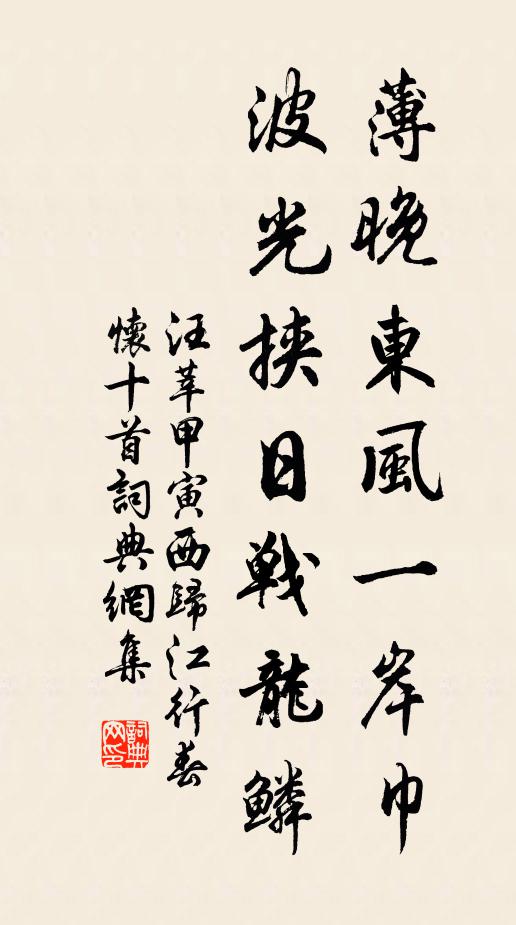 薄晚東風一岸巾
波光挾日戰龍鱗
汪莘甲寅西歸江行春
懷十首詞典網集
詞典網印